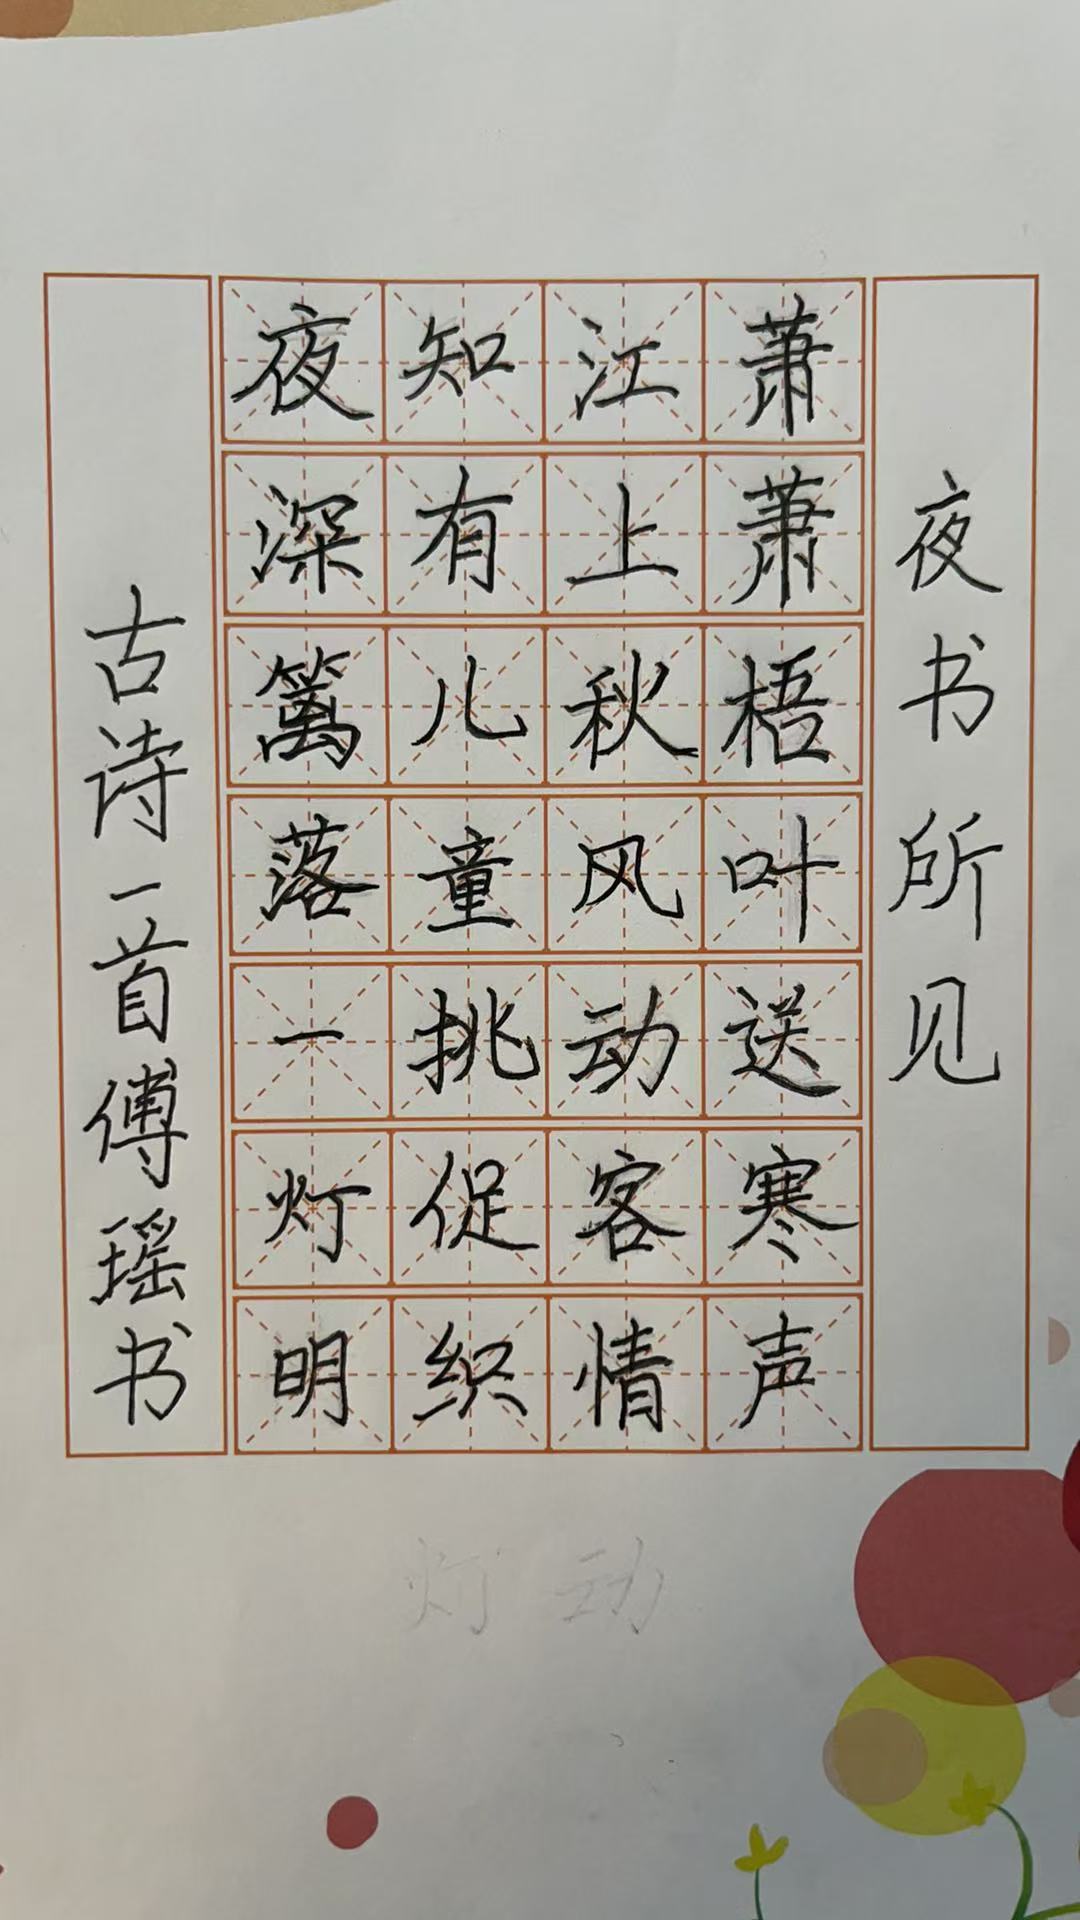 夜书所见
萧萧梧叶送寒声
江上秋风动客情
知有儿童挑促织
夜深篱落一灯明
古诗一首傅瑶书
灯动